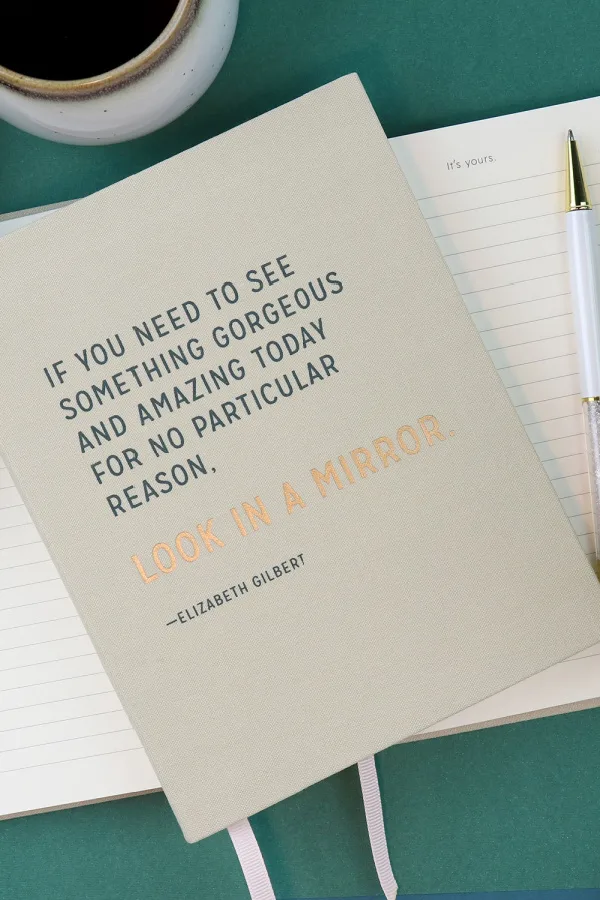 It's yours.
IF YOU NEED TO SEE
SOMETHING GORGEOUS
AND AMAZING TODAY
FOR NO PARTICULAR
REASON,
LOOK IN A MIRROR.
—ELIZABETH GILBERT